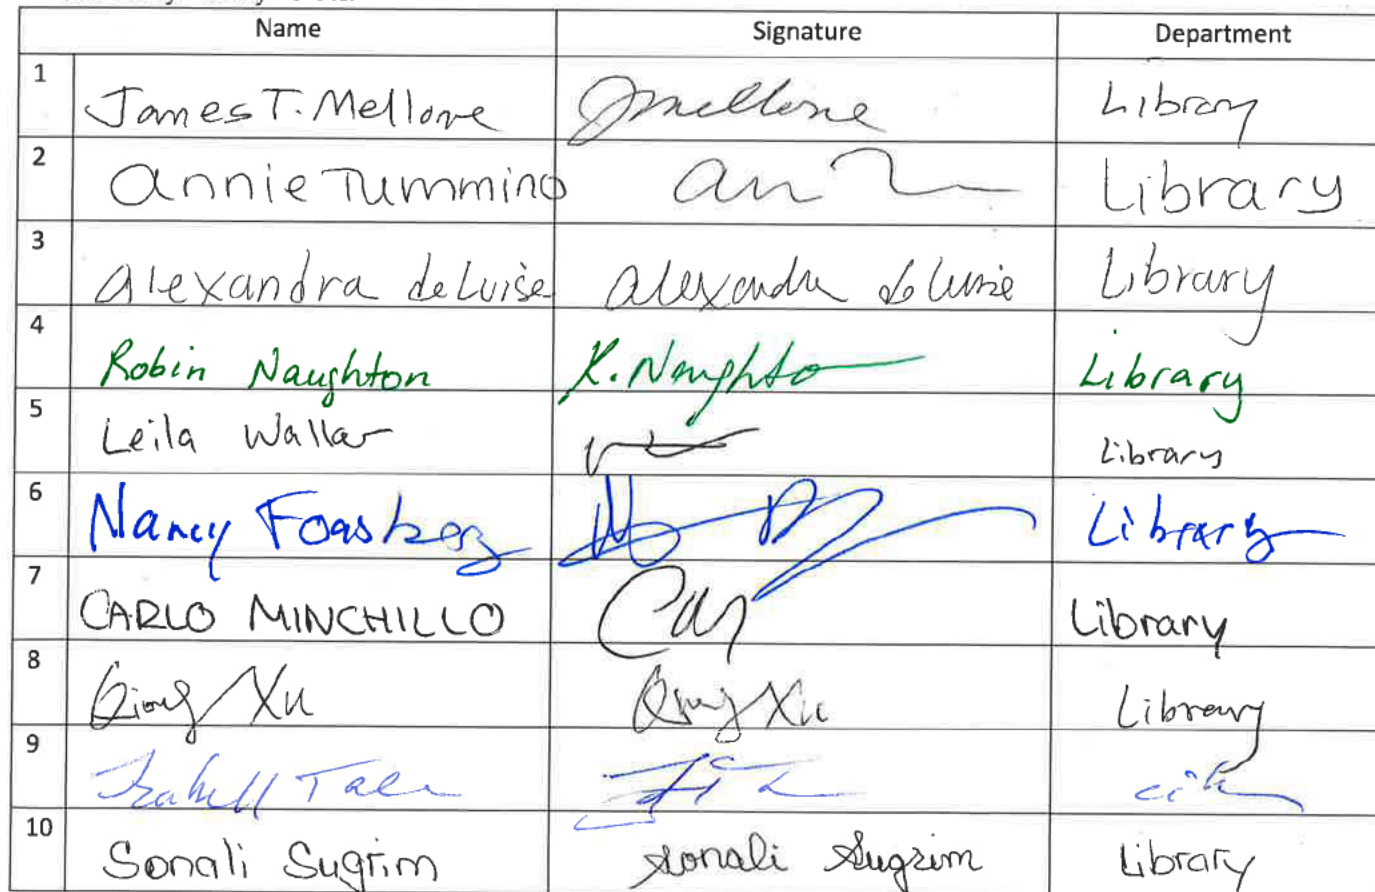 Name Signature Department
1 James T. Mellone JMellone Library
2 Annie Tummino Library
3 Alexandra deLuise Alexandra deLuise Library
4 Robin Naughton R. Naughton Library
5 Leila Walker Library
6 Nancy Foasberg Library
7 CARLO MINCHILLO Library
8 Qiong Xu Qiong Xu Library
9
10 Sonali Sugrim Sonali Sugrim Library